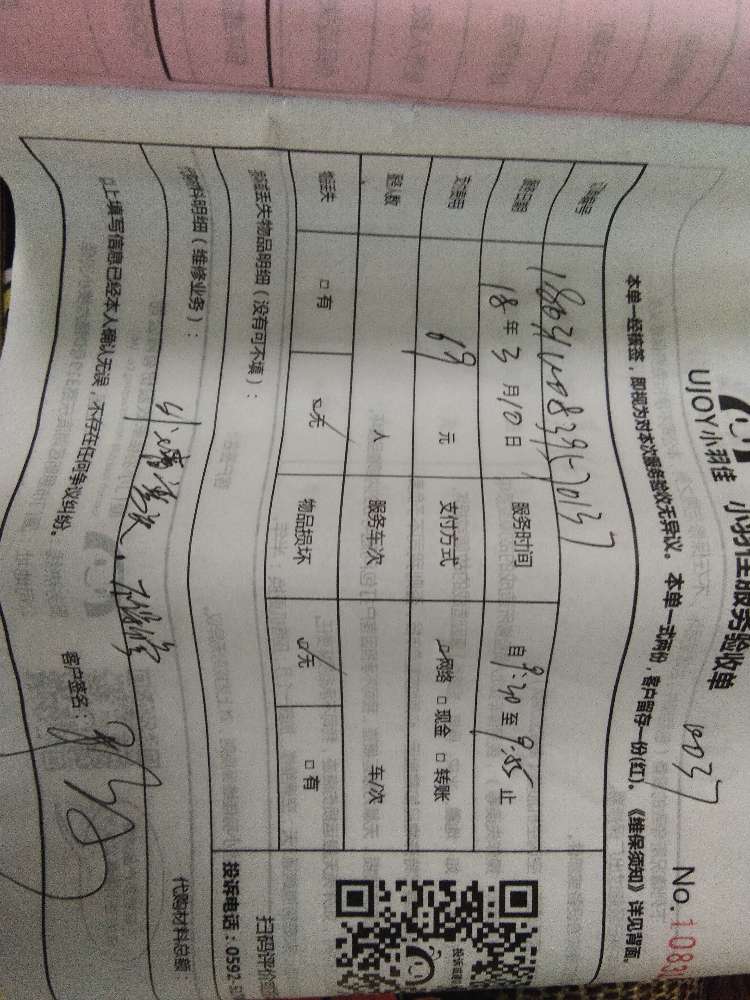 UJOY小羽佳 小羽佳服务验收单
0037
No.1083
本单一经核签，即视为对本次服务验收无异议。本单一式两份，客户留存一份(红)。《维保须知》详见背面。
订单编号
服务日期 18年3月10日 服务时间 自9:30至9:55止
支付费用 69元 支付方式 网络 □现金 □转账
服务人数 人 服务车次 车/次
物品丢失 □有 无 物品损坏 无 □有
损坏丢失物品明细（没有可不填）：
扫码评价
投诉电话：0592-5
材料明细（维修业务）：
代购材料总额：
以上填写信息已经本人确认无误，不存在任何争议纠纷。
客户签名：